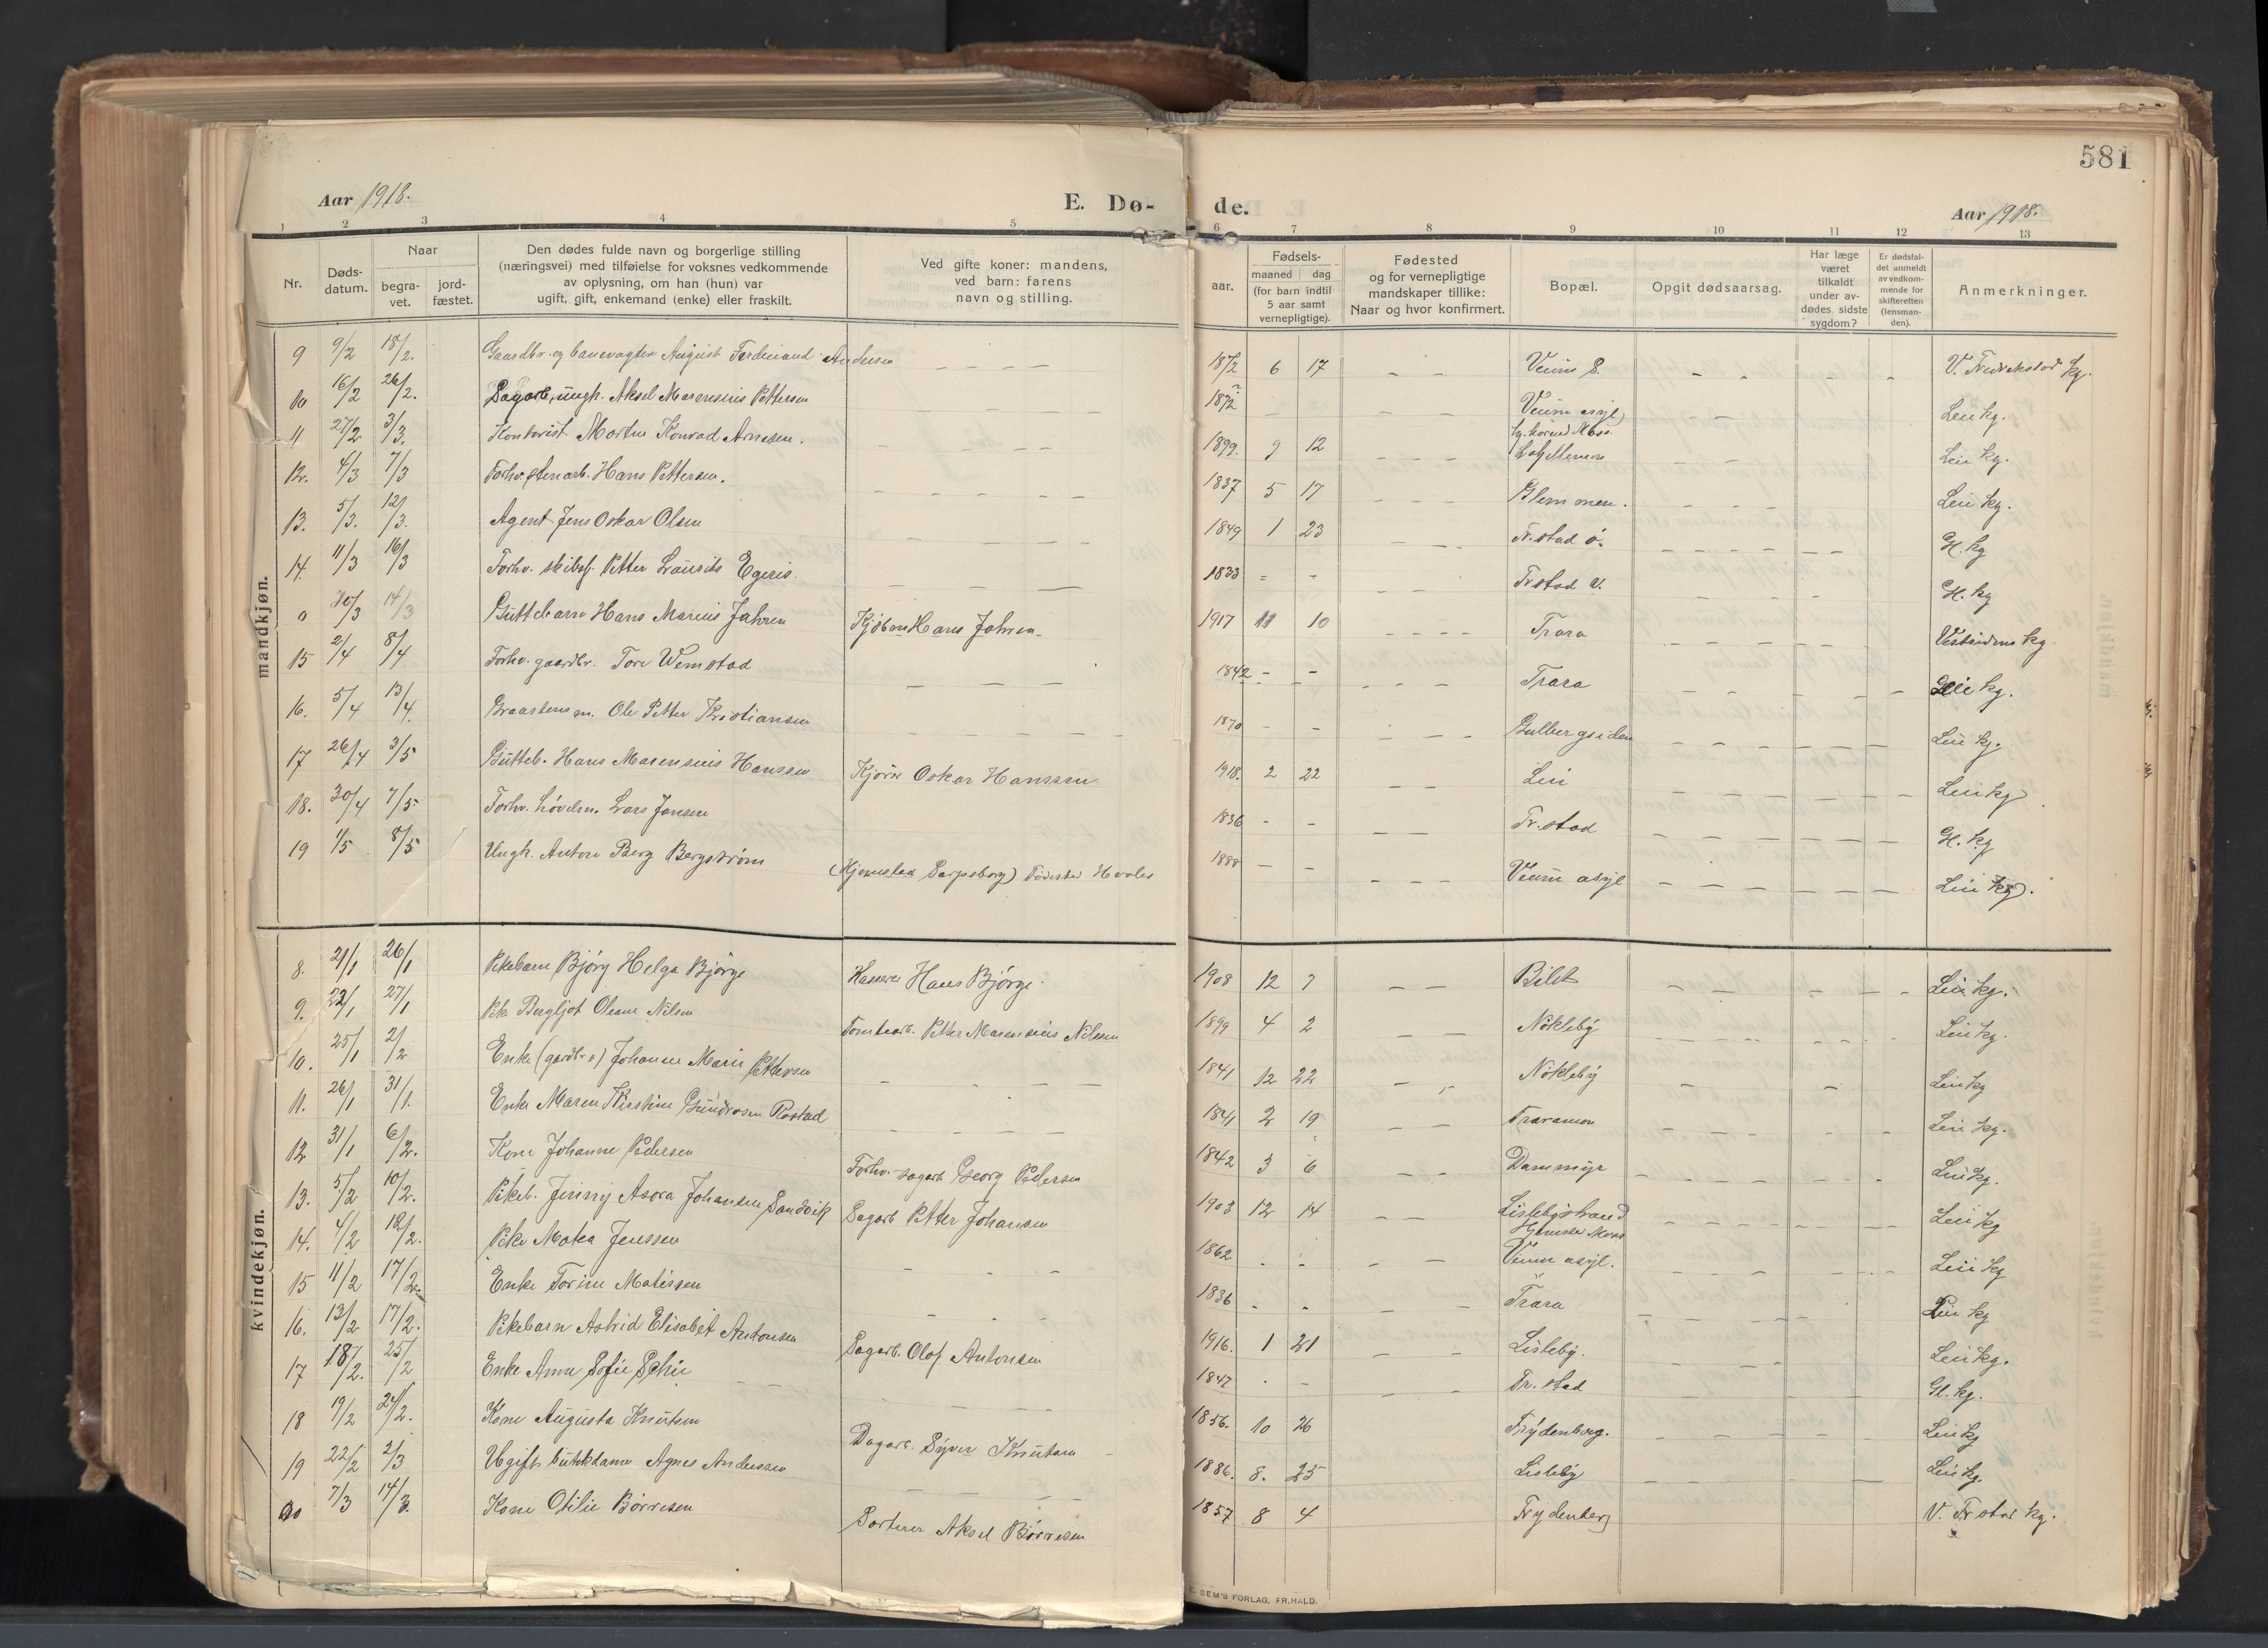 581
Aar 1918.
E. Dø-
de.
Aar 1918.
1 2 3 4 5 6 7 8 9 10 11 12 13
Nr.
Døds-
datum.
Naar
begra-
vet.
jord-
fæstet.
Den dødes fulde navn og borgerlige stilling
(næringsvei) med tilføielse for voksnes vedkommende
av oplysning, om han (hun) var
ugift, gift, enkemand (enke) eller fraskilt.
Ved gifte koner: mandens,
ved barn: farens
navn og stilling.
aar.
Fødsels-
maaned dag
(for barn indtil
5 aar samt
vernepligtige).
Fødested
og for vernepligtige
mandskaper tillike:
Naar og hvor konfirmert.
Bopæl.
Opgit dødsaarsag.
Har læge
været
tilkaldt
under av-
dødes sidste
sygdom?
Er dødsfal-
det anmeldt
av vedkom-
mende for
skifteretten
(lensman-
den).
Anmerkninger.
mandkjøn.
9 9/2 18/2. Gaardbr. og banevogter August Ferdinand Andersen 1872 6 17 Veum S. V. Fredrikstad kg.
10 16/2 26/2. Dagarb, ungk. Aksel Marensius Pettersen 1872 Veum asyl Leie kg.
11 27/2 3/3. Kontorist Morten Konrad Arnesen. 1899. 9 12 Glemmen Leie kg.
12. 4/3 7/3 Forhv. stenarb. Hans Pettersen. 1837 5 17 Glemmen. Leie kg.
13. 5/3. 12/3. Agent Jens Oskar Olsen 1849 1 23 Fr.stad ø. Gl. kg
14. 11/3 16/3 Forhv. skibsf. Petter Laurits Egeris. 1833 Fr.stad V. Gl. kg
0 10/3 14/3 Guttebarn Hans Marius Jahren Kjøbm Hans Jahren 1917 11 10 Trara Vestsidens kg.
15 2/4 8/4 Forhv. gaardbr. Tore Wemstad 1842 Trara Leie kg.
16. 5/4 13/4. Graastensm. Ole Petter Kristiansen 1870 Gulbergsiden Leie kg.
17 26/4 3/5 Gutteb. Hans Marensius Hanssen Kjører Oskar Hanssen 1918. 2 22 Leie Leie kg
18. 30/4 7/5 Forhv. høvlem. Lars Jansen 1836 Fr.stad Gl. kg
19 1/5 8/5 Ungk. Anton Berg Bergstrøm (Hjemstad Sarpsborg) Fødested Hvaler 1888 Veum asyl Leie kg.
kvindekjøn.
8. 21/1 26/1 Pikebarn Bjørg Helga Bjørge Kasserer Hans Bjørge. 1908 12 7 Bilet Leie kg.
9. 22/1 27/1 Pike Bergljot Oleane Nilsen Tomtearb. Petter Marensius Nilssen 1899 4 2 Nøkleby Leie kg.
10. 25/1 2/2 Enke (gardbr.s) Johanne Marie Pettersen 1841 12 22 Nøkleby Leie kg
11. 26/1 31/1. Enke Maren Kirstine Gundrosen Rostad 1841 2 19 Traramoen Leie kg.
12 31/1 6/2. Kone Johanne Pedersen Forhv. sagarb Georg Pedersen 1842 3 6 Dammyr Leie kg.
13. 5/2 10/2. Pikeb. Jenny Asora Johansen Sandvik Sagarb Petter Johansen 1903 12 14 Lislebystrand Leie kg
14. 4/2 12/2. Pike Matea Jenssen 1862 Veum asyl. Leie kg
15 11/2 17/2. Enke Torine Matissen 1836 Trara Leie kg
16. 13/2 17/2. Pikebarn Astrid Elisabet Antonsen Sagarb. Olof Antonsen 1916. 1 21 Lisleby. Leie kg.
17 18/2. 25/2 Enke Anne Sofie Schie 1847 Fr.stad Gl. kg.
18 19/2 24/2. Kone Augusta Knutsen Dagarb. Syver Knutsen 1856. 10 26 Frydenberg. Leie kg
19 22/2 2/3 Ugift butikdame Agnes Anderssen 1886. 8. 25 Lisleby Leie kg
20 7/3 14/3. Kone Otilie Børresen Sorterer Aksel Børresen 1857 8 4 Frydenberg V. Fr.stad kg.
E. SEM'S FORLAG, FR.HALD.